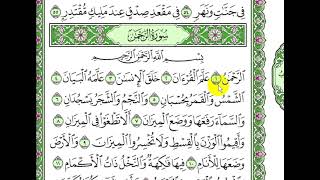 فِى جَنَّٰتٍ وَنَهَرٍ ٥٤ فِى مَقْعَدِ صِدْقٍ عِندَ مَلِيكٍ مُّقْتَدِرٍۭ ٥٥
سُورَةُ الرَّحْمَٰن
بِسْمِ ٱللَّهِ ٱلرَّحْمَٰنِ ٱلرَّحِيمِ
ٱلرَّحْمَٰنُ ١ عَلَّمَ ٱلْقُرْءَانَ ٢ خَلَقَ ٱلْإِنسَٰنَ ٣ عَلَّمَهُ ٱلْبَيَانَ ٤
ٱلشَّمْسُ وَٱلْقَمَرُ بِحُسْبَانٍ ٥ وَٱلنَّجْمُ وَٱلشَّجَرُ يَسْجُدَانِ ٦
وَٱلسَّمَآءَ رَفَعَهَا وَوَضَعَ ٱلْمِيزَانَ ٧ أَلَّا تَطْغَوْا۟ فِى ٱلْمِيزَانِ ٨
وَأَقِيمُوا۟ ٱلْوَزْنَ بِٱلْقِسْطِ وَلَا تُخْسِرُوا۟ ٱلْمِيزَانَ ٩ وَٱلْأَرْضَ
وَضَعَهَا لِلْأَنَامِ ١٠ فِيهَا فَٰكِهَةٌ وَٱلنَّخْلُ ذَاتُ ٱلْأَكْمَامِ ١١